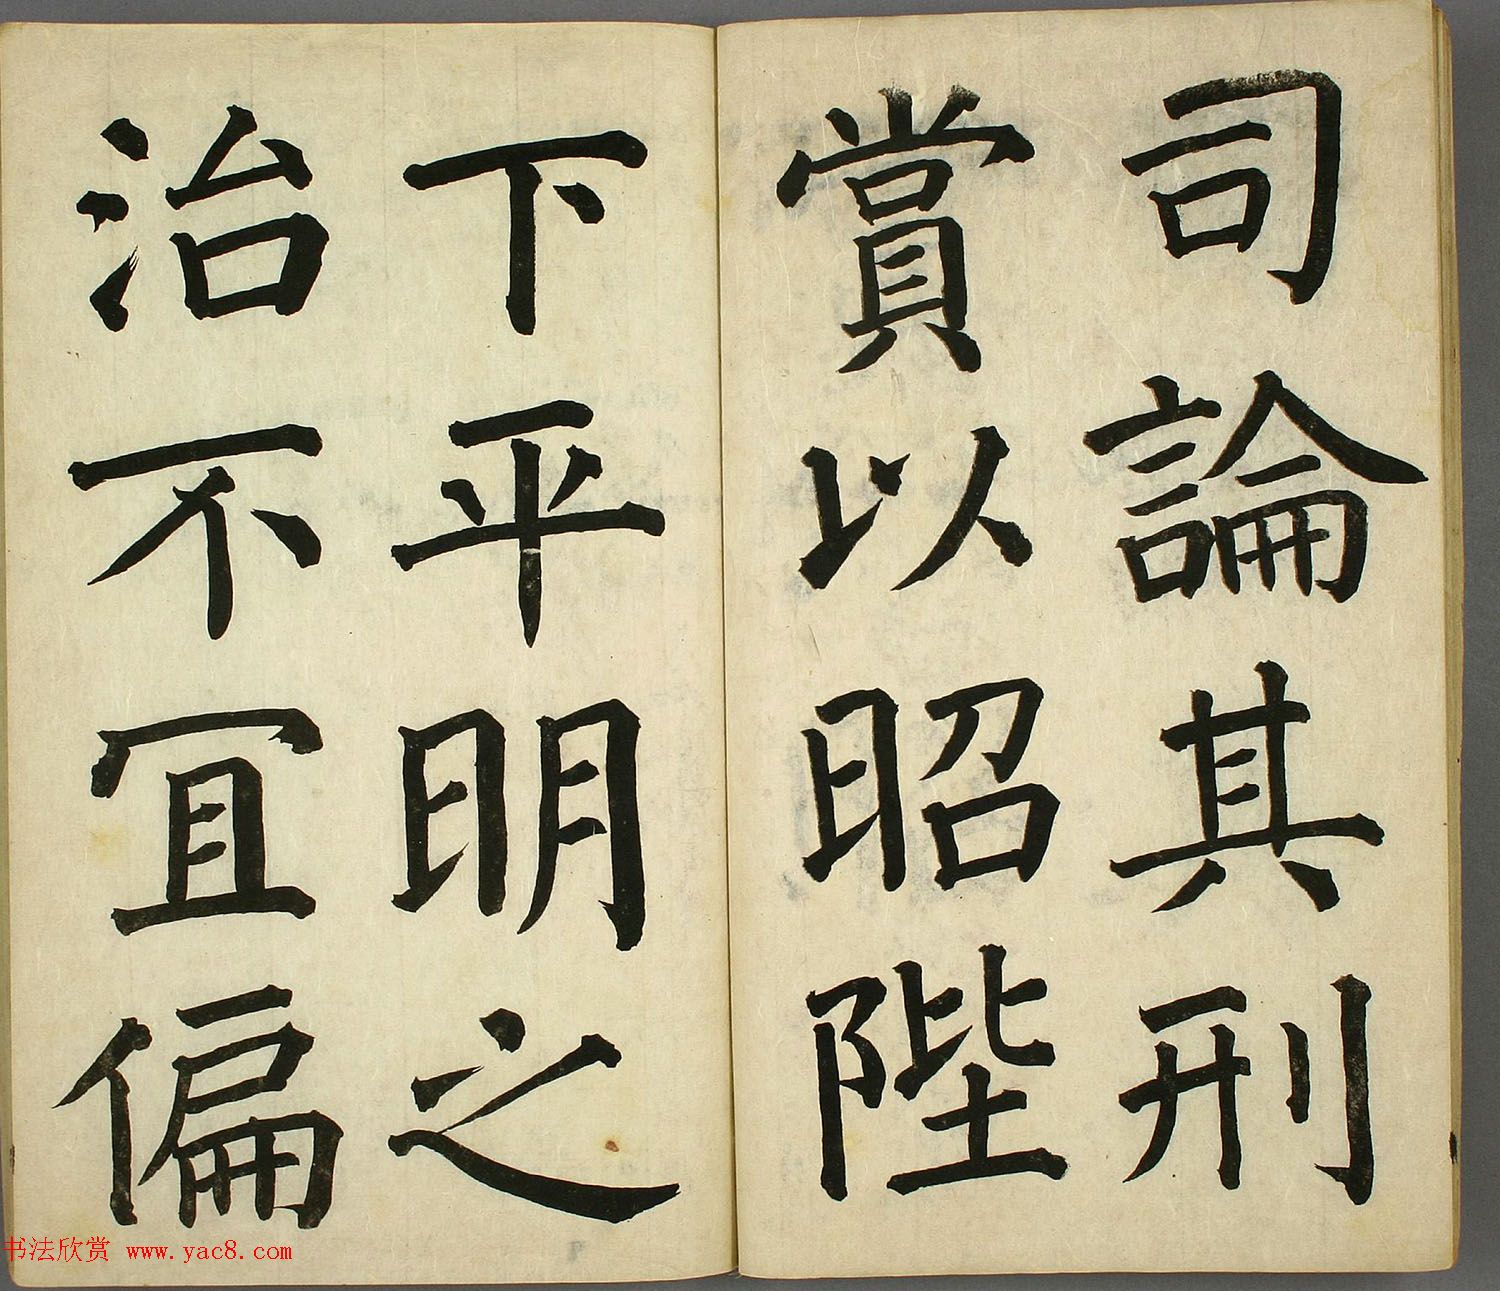 司論其刑
賞以昭陛
下平明之
治不冝偏
书法欣赏 www.yac8.com